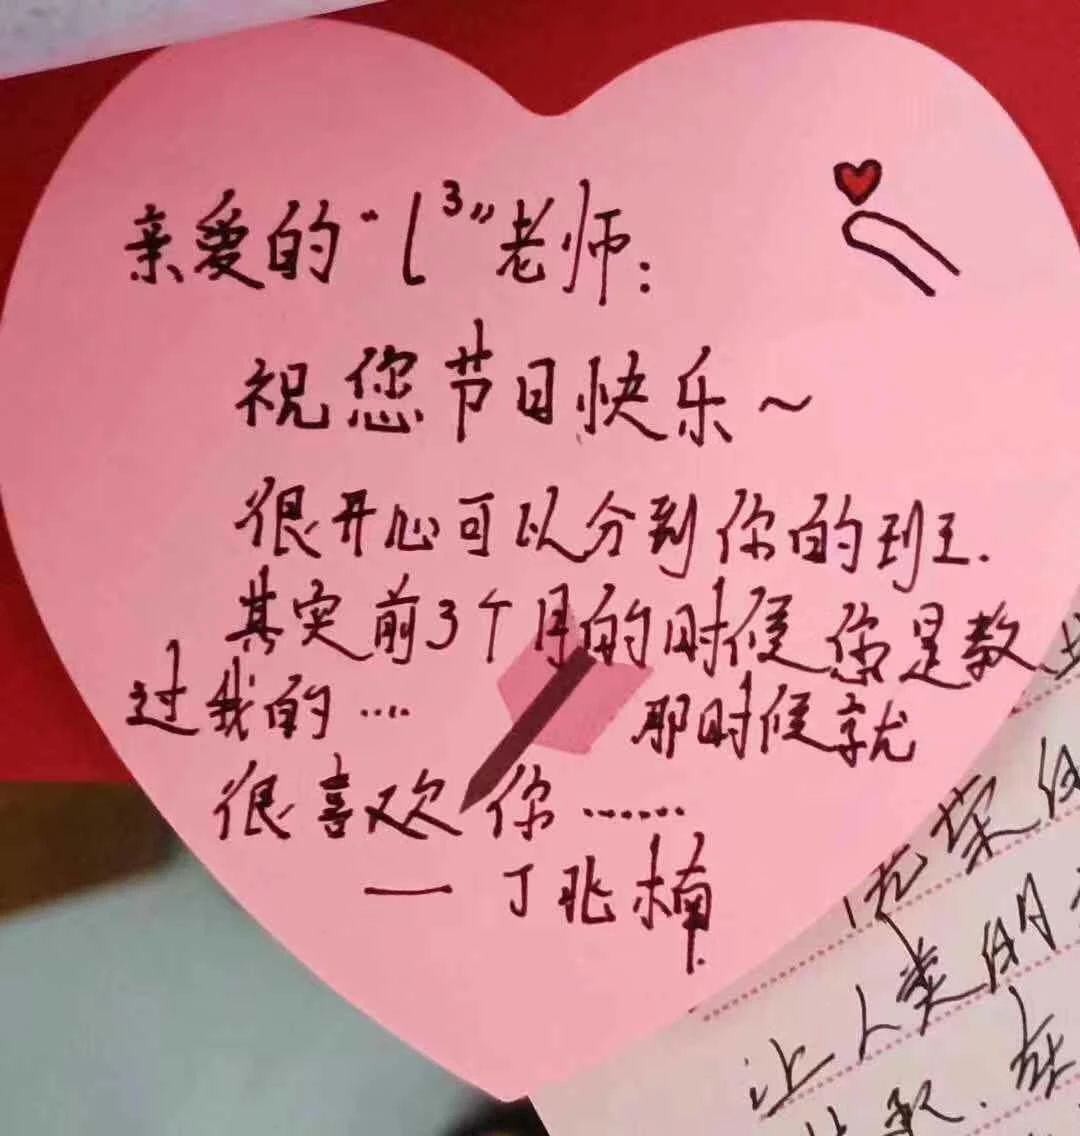 亲爱的“l³”老师:
祝您节日快乐~
很开心可以分到你的班.
其实前3个月的时候您是教
过我的.... 那时候就
很喜欢你......
— 丁兆楠
光荣的
让人类的